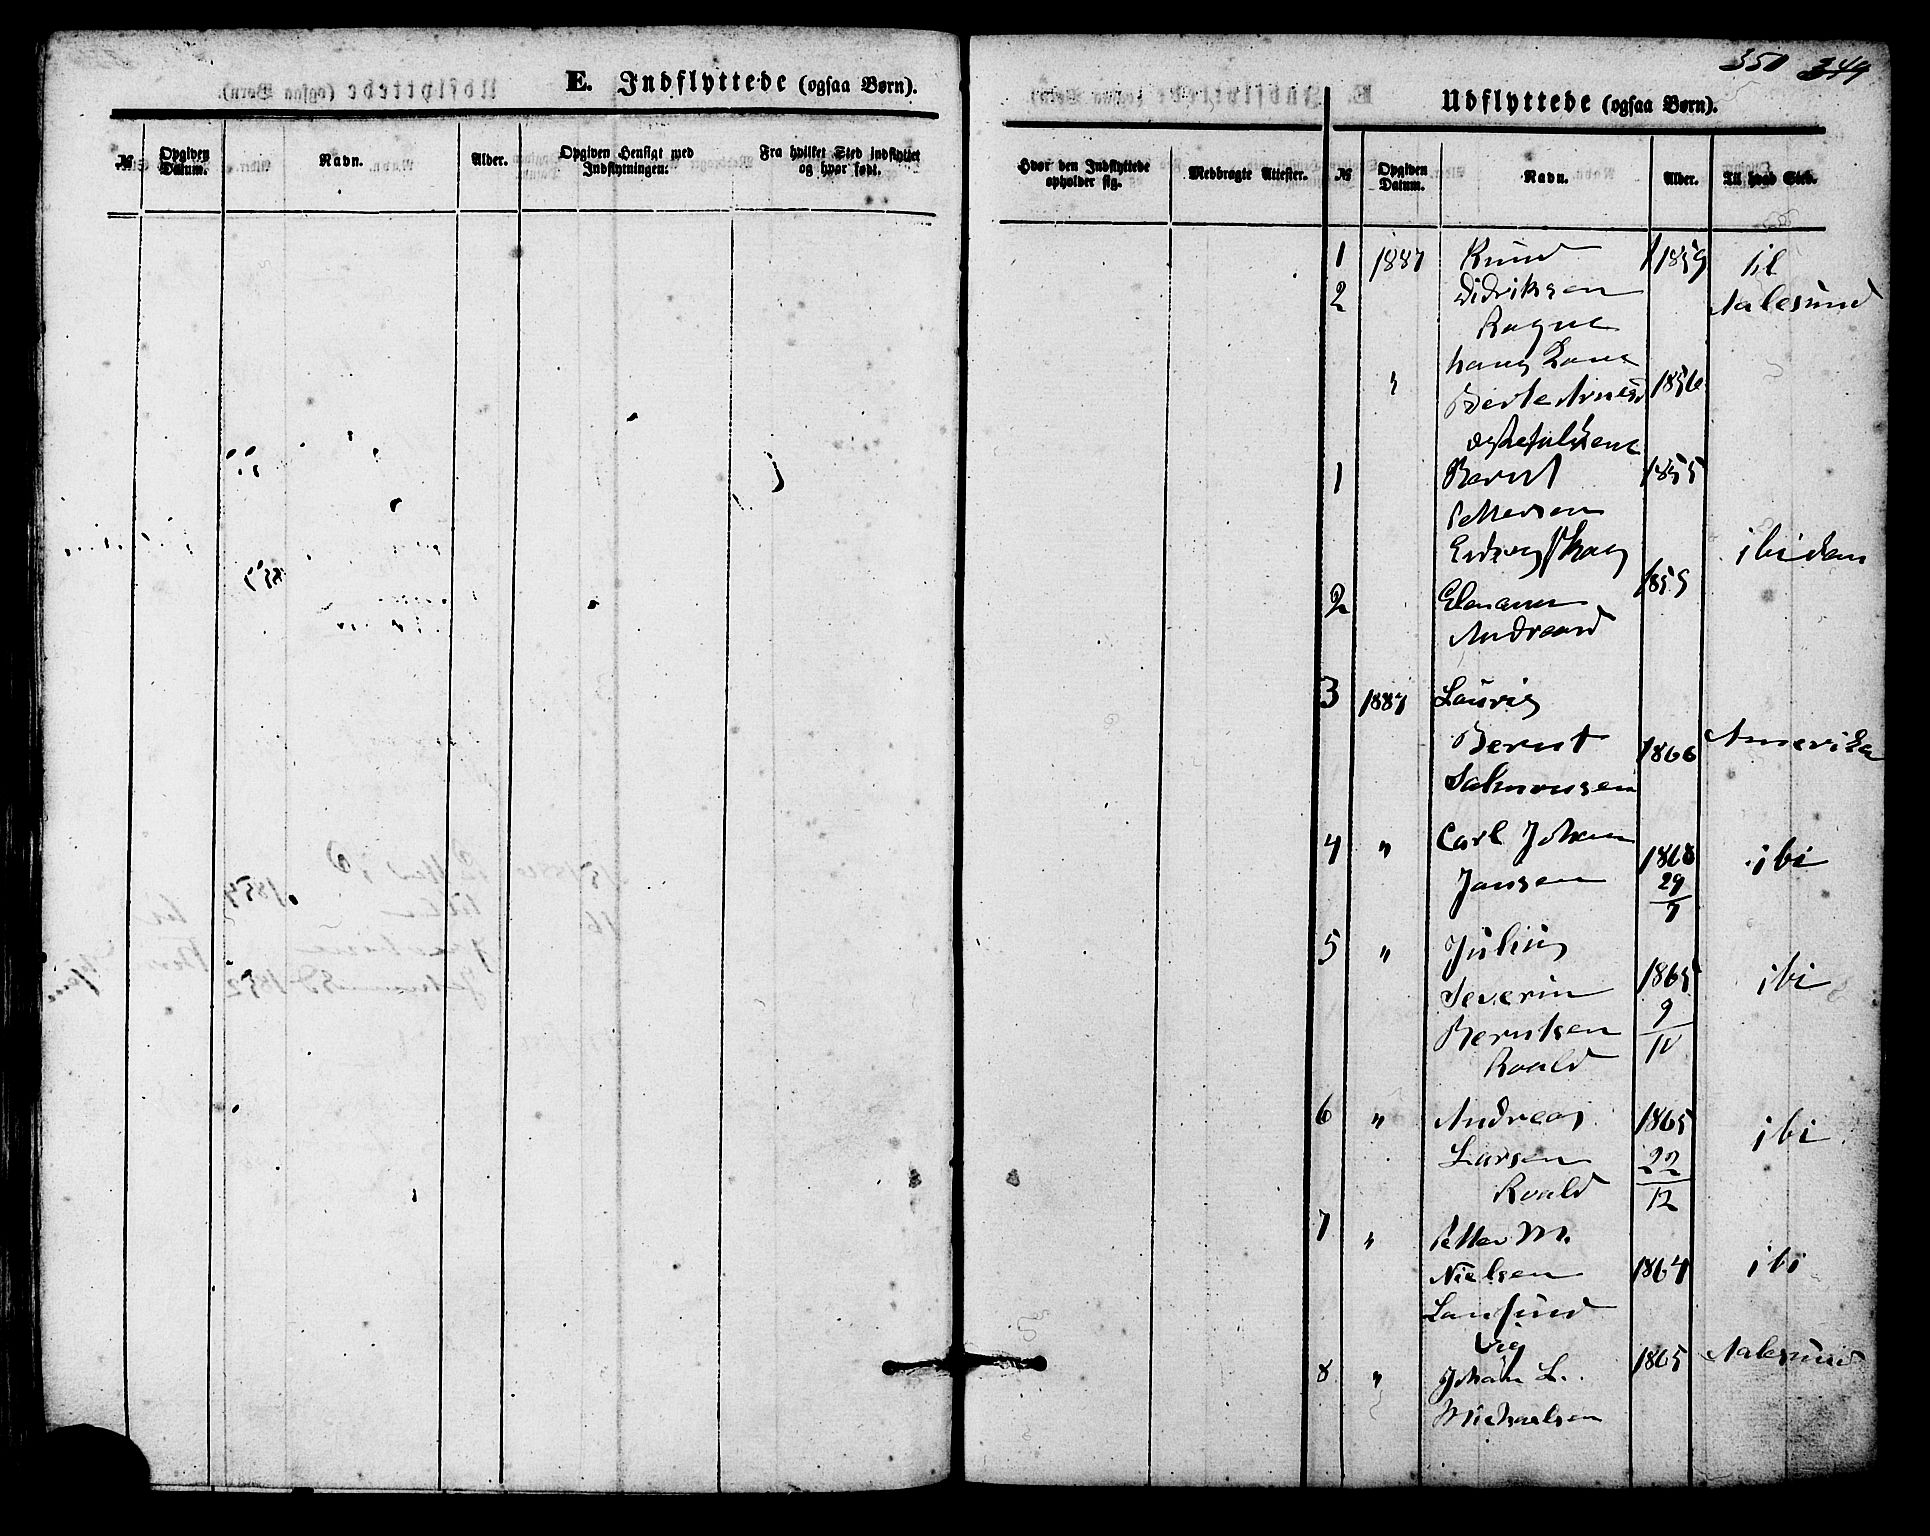 350 349
E. Indflyttede (ogsaa Børn).
№ Opgiven Datum. Navn. Alder. Opgiven Hensigt med Indflytningen. Fra hvilket Sted indflyttet og hvor født.
Hvor den Indflyttede opholder sig. Medbragte Attester.
Udflyttede (ogsaa Børn).
№ Opgiven Datum. Navn. Alder. Til hvad Sted.
1 1887 Knud 1859 til
2 Didriksen Aalesund
Hans Kone
" Berte 1856
1 Bernt 1855
Pettersen
ibidem
2 1859
3 1887 Lauris
Bernt 1866 Amerika
Salmonsen
4 " Carl Johan 1868 ibi
Jansen 29/7
5 " Julius
Severin 1865 ibi
Berntsen 9/10
Roald
6 " Andreas 1865 ibi
Larsen 22/12
Roald
7 " Petter M.
Nielsen 1864 ibi
Vig
8 " Johan L. 1865 Aalesund
Michaelsen